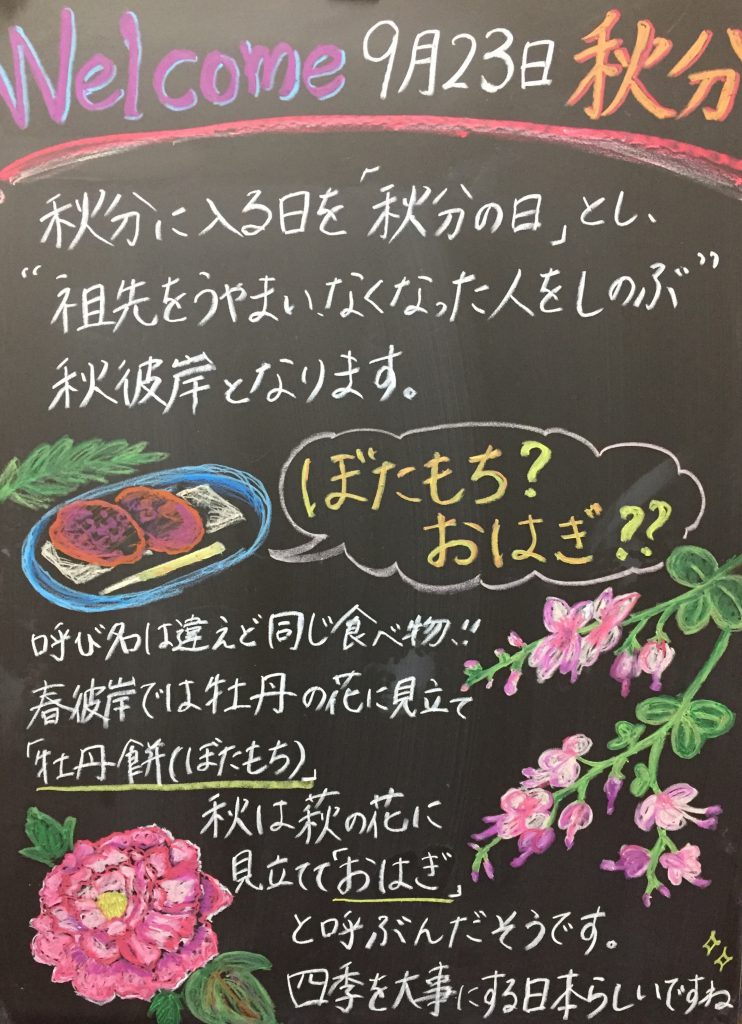 Welcome 9月23日 秋分
秋分に入る日を「秋分の日」とし、
“祖先をうやまい、なくなった人をしのぶ”
秋彼岸となります。
ぼたもち?
おはぎ??
呼び名は違えど同じ食べ物!!
春彼岸では牡丹の花に見立て
「牡丹餅(ぼたもち)」
秋は萩の花に
見立てて「おはぎ」
と呼ぶんだそうです。
四季を大事にする日本らしいですね